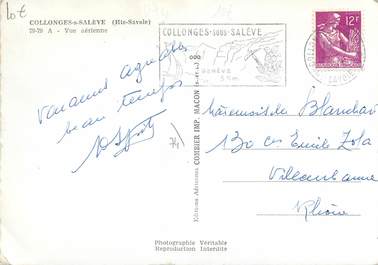 lot
COLLONGES-s-SALÈVE (Hte-Savoie)
79-79 A - Vue aérienne
COLLONGES-SOUS-SALÈVE
GENÈVE
12F
Vacances agréables
beau temps
74
Editions Aériennes COMBIER IMP. MACON
Mademoiselle Blanchard
130 Cos Emile Zola
Villeurbanne
Rhône
Photographie Véritable
Reproduction Interdite